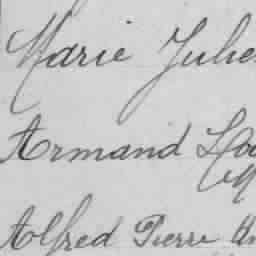 Marie Julie
Armand
Alfred Pierre